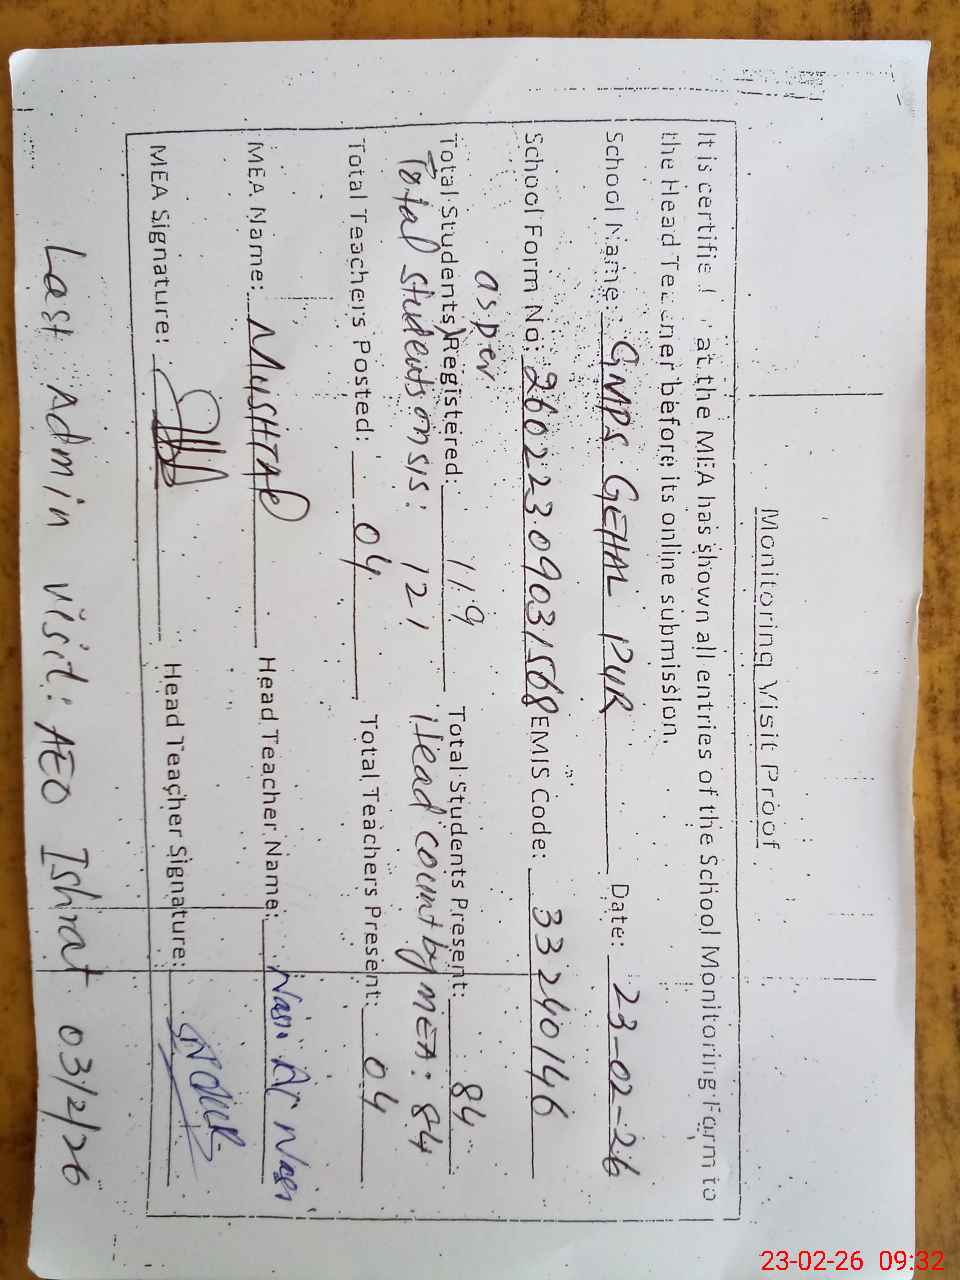 Monitoring Visit Proof
It is certifie at the MEA has shown all entries of the School Monitoring Farm to
the Head Teacher before its online submission.
School Name: GMPS GEHAL PUR Date: 23-02-26
School Form No: 26022309031568 EMIS Code: 33240146
as per
Total Students Registered: 119 Total Students Present: 84
Total students on sis: 121 Head count by MEA: 84
Total Teachers Posted: 04 Total Teachers Present: 04
MEA Name: MUSHTAQ Head Teacher Name:
MEA Signature: Head Teacher Signature:
Last Admin visit: AEO Ishrat 03/2/26
23-02-26 09:32